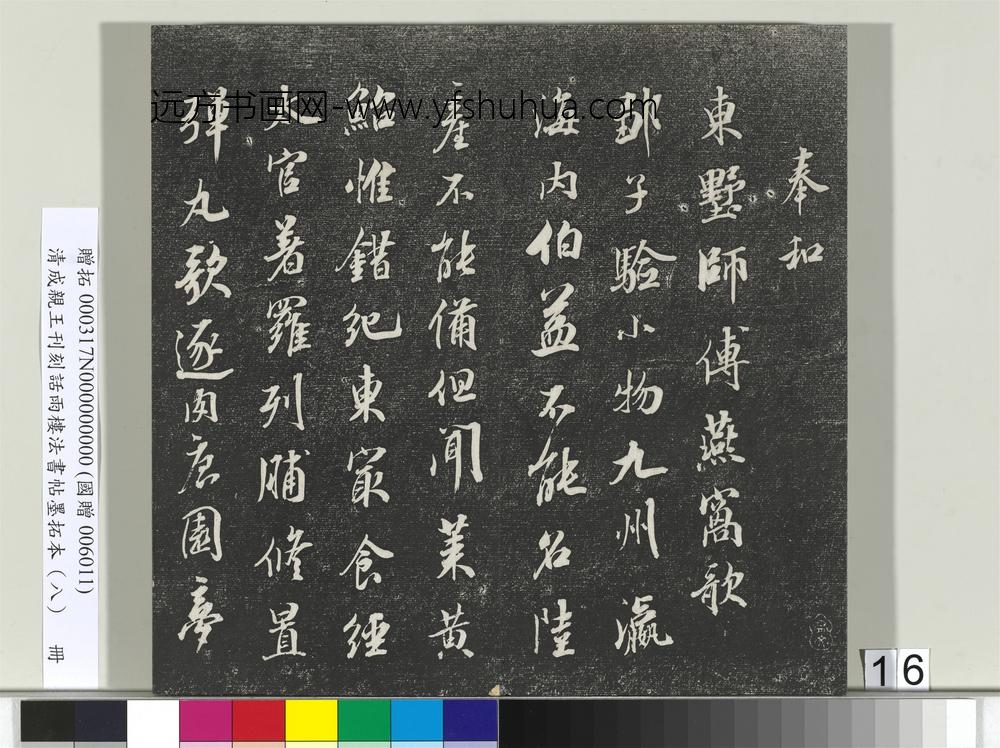 奉和
東墅師傅燕窩歌
鄒子驗小物九州瀛
海内伯益不能名陸
産不能備但聞葉黃
鮐惟錯紀東冣食經
官著羅列脯脩置
彈丸歌逐肉唐園夢
远方书画网-www.yfshuhua.com
贈拓 000317N000000000 (國贈 006011)
清成親王刊刻話雨樓法書帖墨拓本（八） 冊
16